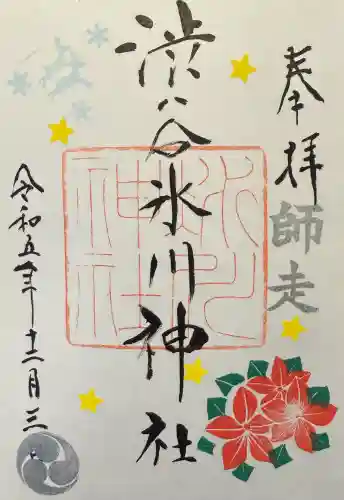 奉拝
師走
渋谷氷川神社
氷川神社
令和五年十二月三